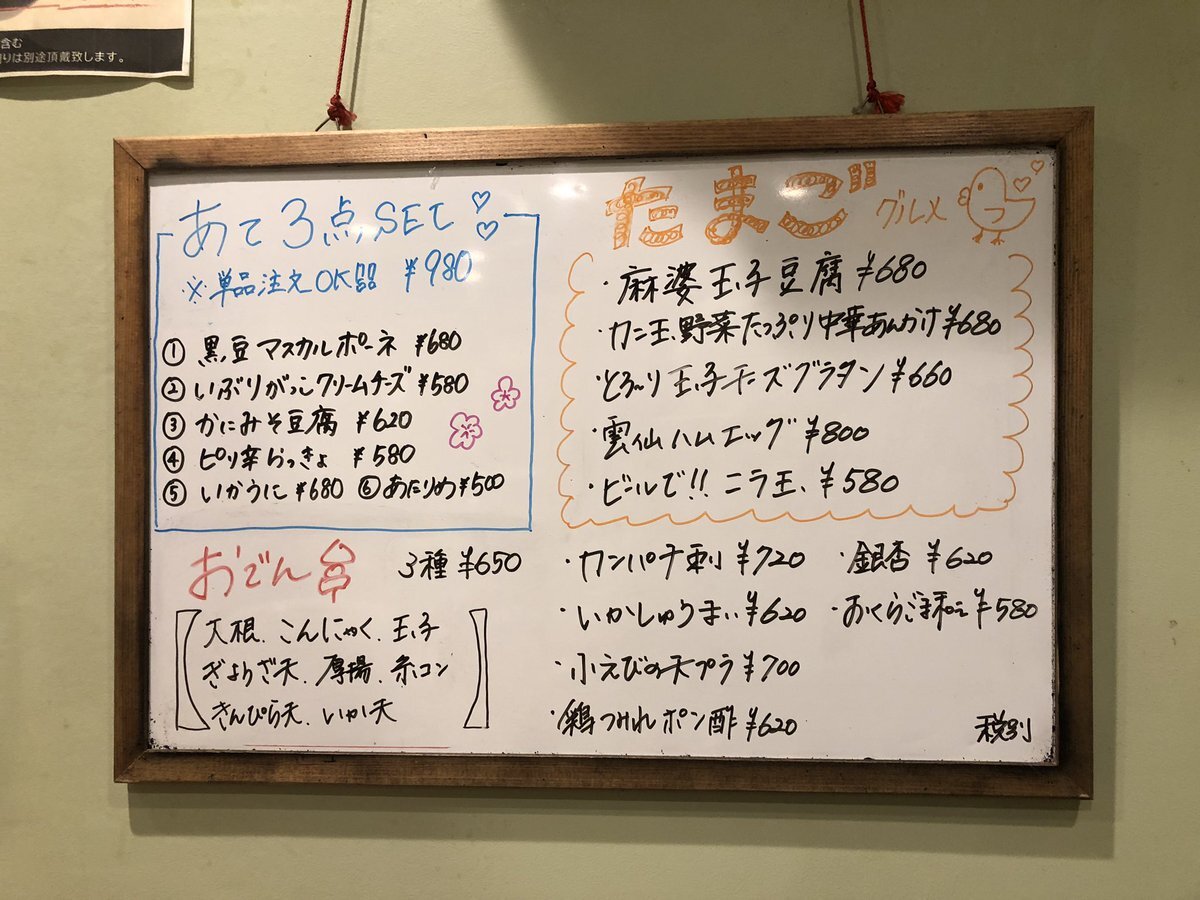 含む
りは別途頂戴致します。
あて3点SET
※単品注文OK ¥980
① 黒豆マスカルポーネ ¥680
② いぶりがっこクリームチーズ ¥580
③ かにみそ豆腐 ¥620
④ ピリ辛らっきょ ¥580
⑤ いかうに ¥680 ⑥ あたりめ ¥500
おでん 3種 ¥650
大根、こんにゃく、玉子
ぎょうざ天、厚揚、糸コン
きんぴら天、いか天
たまご グルメ
・麻婆玉子豆腐 ¥680
・カニ玉、野菜たっぷり中華あんかけ ¥680
・とろ〜り玉子チーズグラタン ¥660
・雲仙ハムエッグ ¥800
・ビールで!! ニラ玉、 ¥580
・カンパチ刺 ¥720
・銀杏 ¥620
・いかしゅうまい ¥620
・おくらごま和え ¥580
・小えびの天プラ ¥700
・鶏つみれポン酢 ¥620
税別